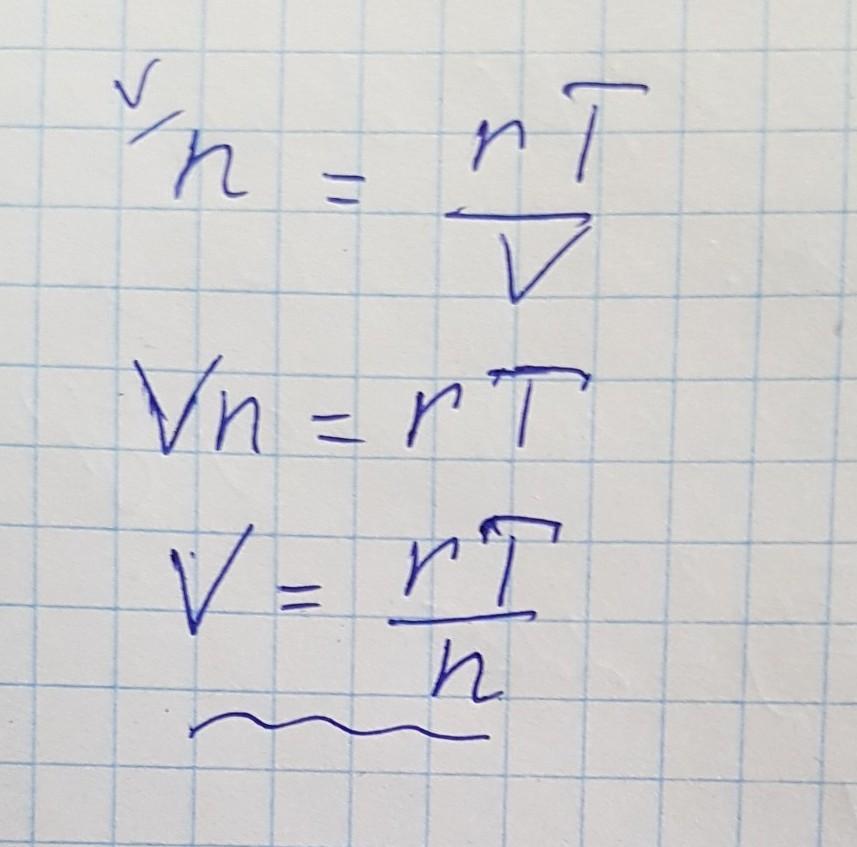 V/n = rT/V
Vn = rT
V = rT/n